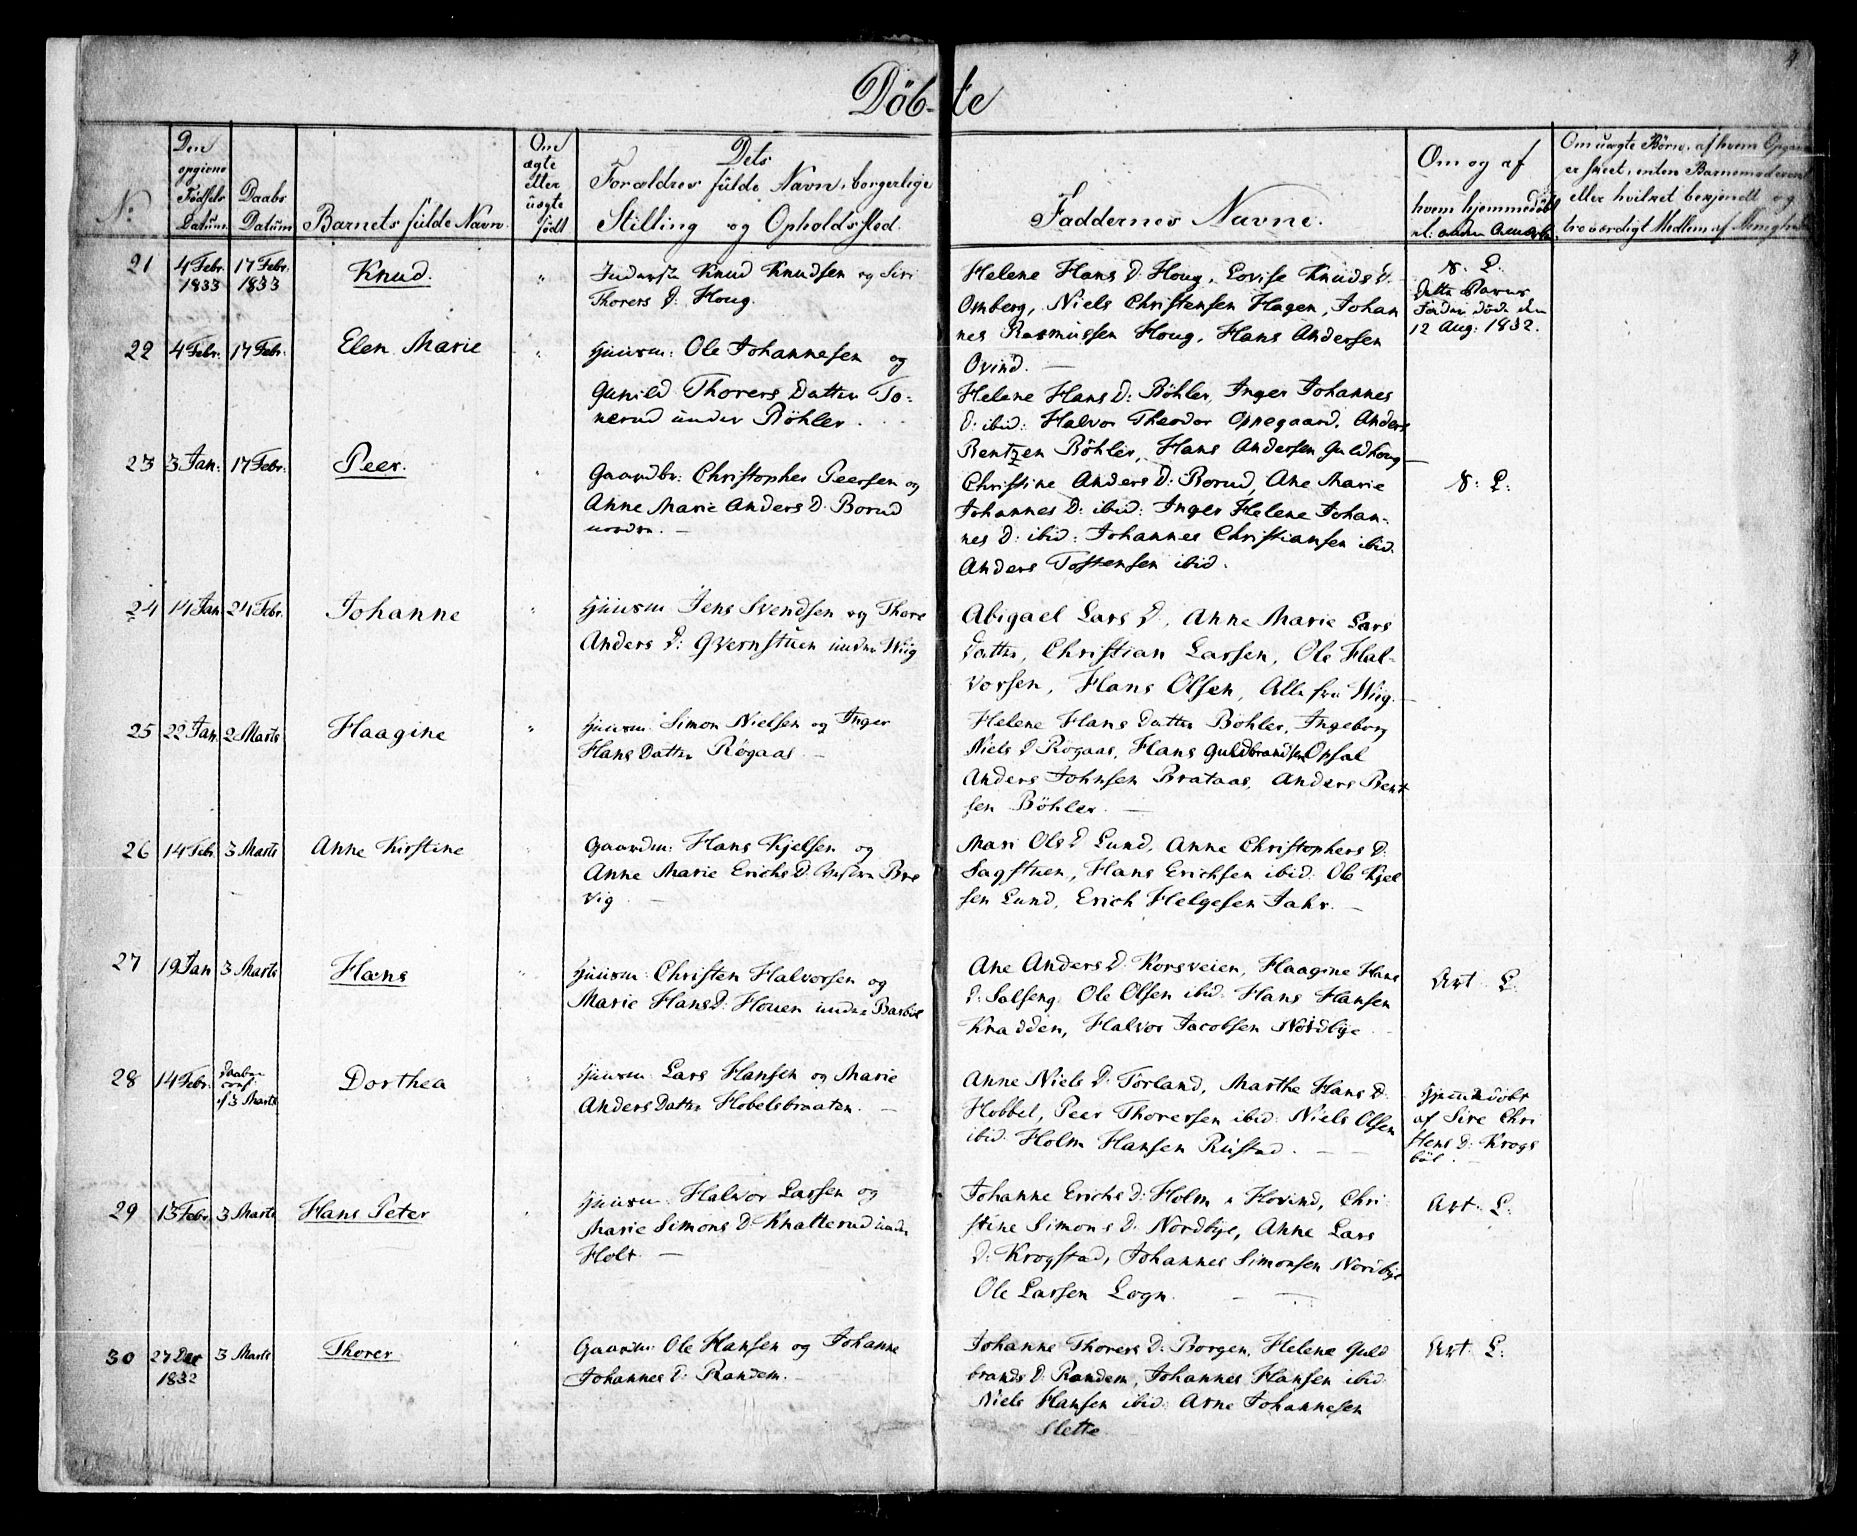 4
Döb-te
No
Den opgivne Födsels Datum
Daabs Datum
Barnets fulde Navn
Om ægte eller uægte födt
Dets Forældres fulde Navn, borgerlige Stilling og Opholdssted.
Faddernes Navne.
Om og af hvem hjemmedöbt
Om uægte Börn, af hvem
er skeet, enten Barnemoderen
eller hvilket og
troværdigt Medlem af
21
4 Febr. 1833
17 Febr. 1833
Knud.
Knud Knudsen og Siri
Thorers D: Houg.
Helene Hans D. Houg, Lovise Knuds D.
Omberg, Niels Christensen Hagen, Johan
nes Rasmussen Houg, Hans Andersen
Ovind. —
N. L.
Dette Barns
Fader döde den
12 Aug: 1832.
22
4 Febr.
17 Febr.
Elen Marie
Huusm: Ole Johannesen og
Gunild Thorers Datter To-
nerud under Böhler.
Helene Hans D: Böhler, Inger Johannes
D: ibid: Halvor Theodor Oppegaard, Anders
Bentzen Böhler, Hans Andersen Guldhoug
23
3 Jan.
17 Febr.
Peer.
Gaardbr: Christopher Peersen og
Anne Marie Anders D. Borud
nordre. —
Christine Anders D: Borud, Ane Marie
Johannes D: ibid: Inger Helene Johan-
nes D: ibid: Johannes Christiansen ibid.
Anders Tostensen ibid.
N: L:
24
14 Jan
24 Febr.
Johanne
Huusm Jens Svendsen og Thore
Anders D: Qvernstuen under Wiig
Abigael Lars D, Anne Marie Lars
Datter, Christian Larsen, Ole Hal-
vorsen, Hans Olsen, Alle fra Wiig.
25
22 Jan.
2 Marts
Haagine
Huusm: Simon Nielsen og Inger
Hans Datter Rögaas —
Helene Hans Datter Böhler, Ingeborg
Niels D Rögaas, Hans Guldbrandsen Opsal
Anders Johnsen Brataas, Anders Bent
sen Böhler. —
26
14 Febr
3 Marts
Anne Kirstine
Gaardm: Hans Kjelsen og
Anne Marie Erichs D. Bre
vig. —
Mari Ols D Lund, Anne Christophers D.
Sagstuen, Hans Erichsen ibid: Ole Kjel
sen Lund, Erich Helgesen Jahr. —
27
19 Jan
3 Marts
Hans
Huusm: Christen Halvorsen og
Marie Hans D: Houen under Barböl
Ane Anders D: Korsveien, Haagine Hans
D: Solfeng, Ole Olsen ibid: Hans Hansen
Knadden, Halvor Jacobsen Nordbye
Art. L.
28
14 Febr.
Daaben
conf.
3 Marts
Dorthea
Huusm: Lars Hansen og Marie
Anders Datter Hobelsbraaten. —
Anne Niels D: Torland, Marthe Hans D.
Hobbel, Peer Thoresen ibid: Niels Olsen
ibid: Holm Hansen Rustad. —
Hjemmedöbt
af Sire Chri
stens D: Krogs
böl.
29
13 Febr
3 Marts
Hans Peter
Huusm: Halvor Larsen og
Marie Simons D Knatterud under
Holt. —
Johanne Erichs D: Holm i Hovind, Chri
stine Simons D: Nordbye, Anne Lars
D: Krogstad, Johannes Simonsen Nordbye
Ole Larsen Logn.
Art. L:
30
27 Dec 1832
3 Marts
Thorer
Gaardm: Ole Hansen og Johanne
Johannes D: Randem. —
Johanne Thorers D: Borgen, Helene Guld
brands D: Randem, Johannes Hansen ibid
Niels Hansen ibid: Arne Johannesen
Slette.
Art: L: